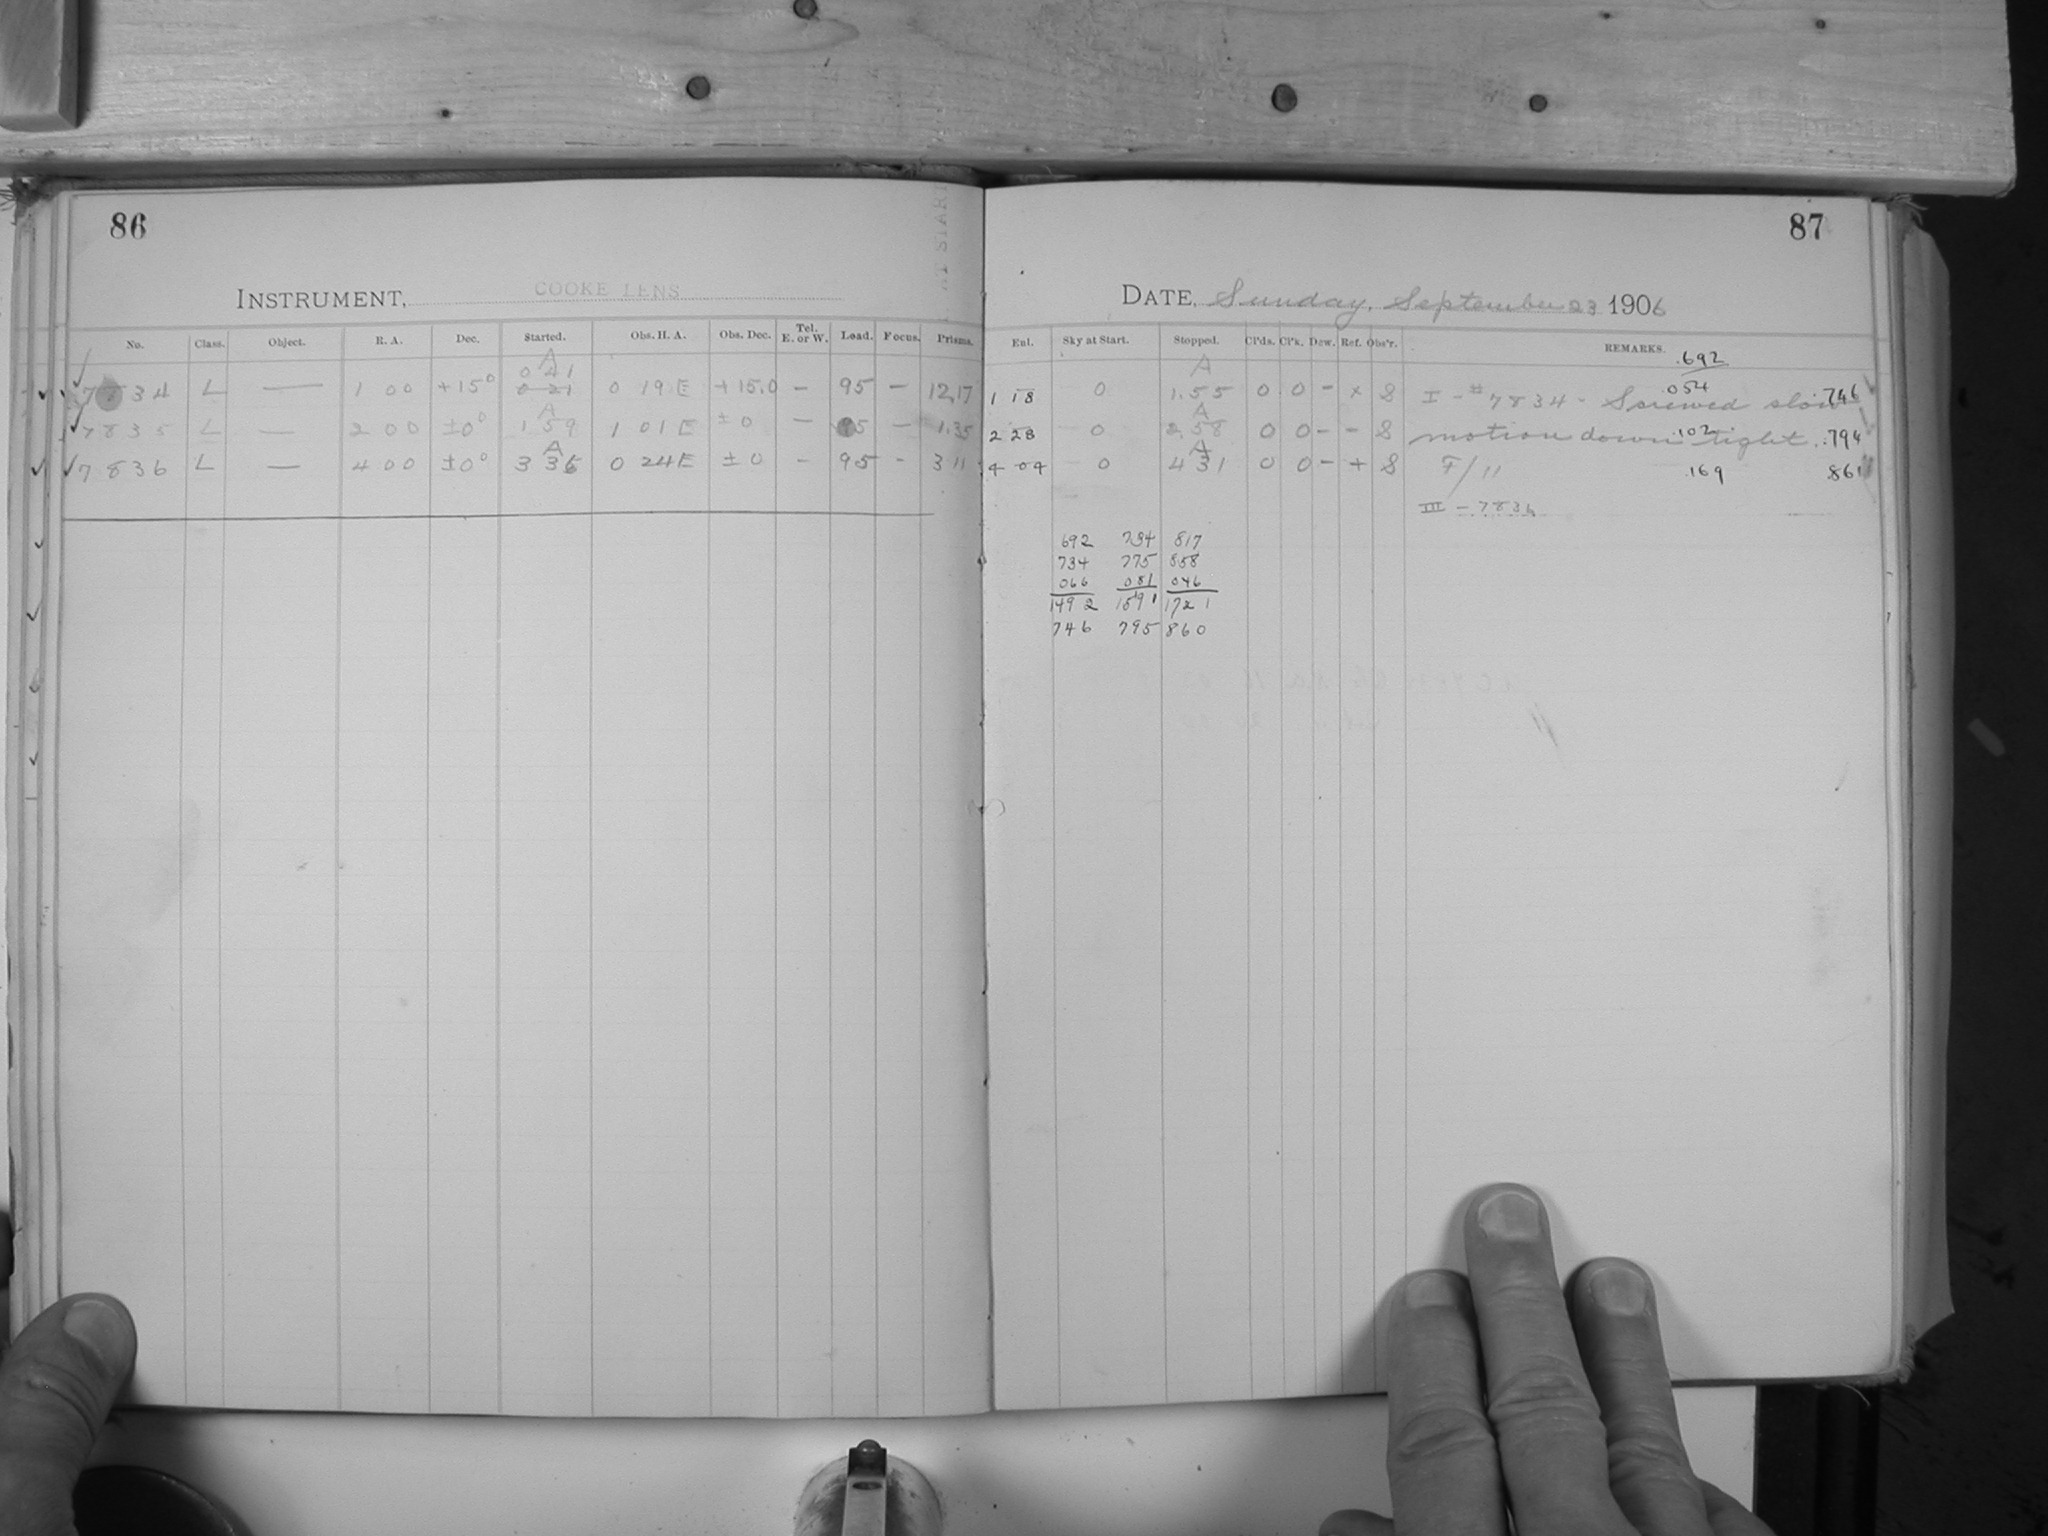 86
87
INSTRUMENT, COOKE LENS
DATE, Sunday, September 23 1906
No. Class. Object. R. A. Dec. Started. Obs. H. A. Obs. Dec. Tel. E. or W. Load. Focus. Prisms.
Sky at Start. Stopped. Cl'ds. Cl'k. Dew. Ref. Obs'r. REMARKS.
.692
A
0 41
A
7834 L — 1 00 +15° 0 21 0 19 E +15.0 – 95 – 12.17 1 18 0 1.55 0 0 – × S I – #7834 – Screwed slow .054 .746
A
A
7835 L — 2 00 ±0° 1 59 1 01 E ±0 – 95 – 1.35 2 28 0 2.58 0 0 – – S motion down tight .102 .794
A
A
7836 L — 4 00 ±0° 3 36 0 24 E ±0 – 95 – 3 11 4 04 0 4 31 0 0 – + S F/11 .169 .861
III – 7836
692 734 817
734 775 858
066 081 046
1492 1591 1721
746 795 860